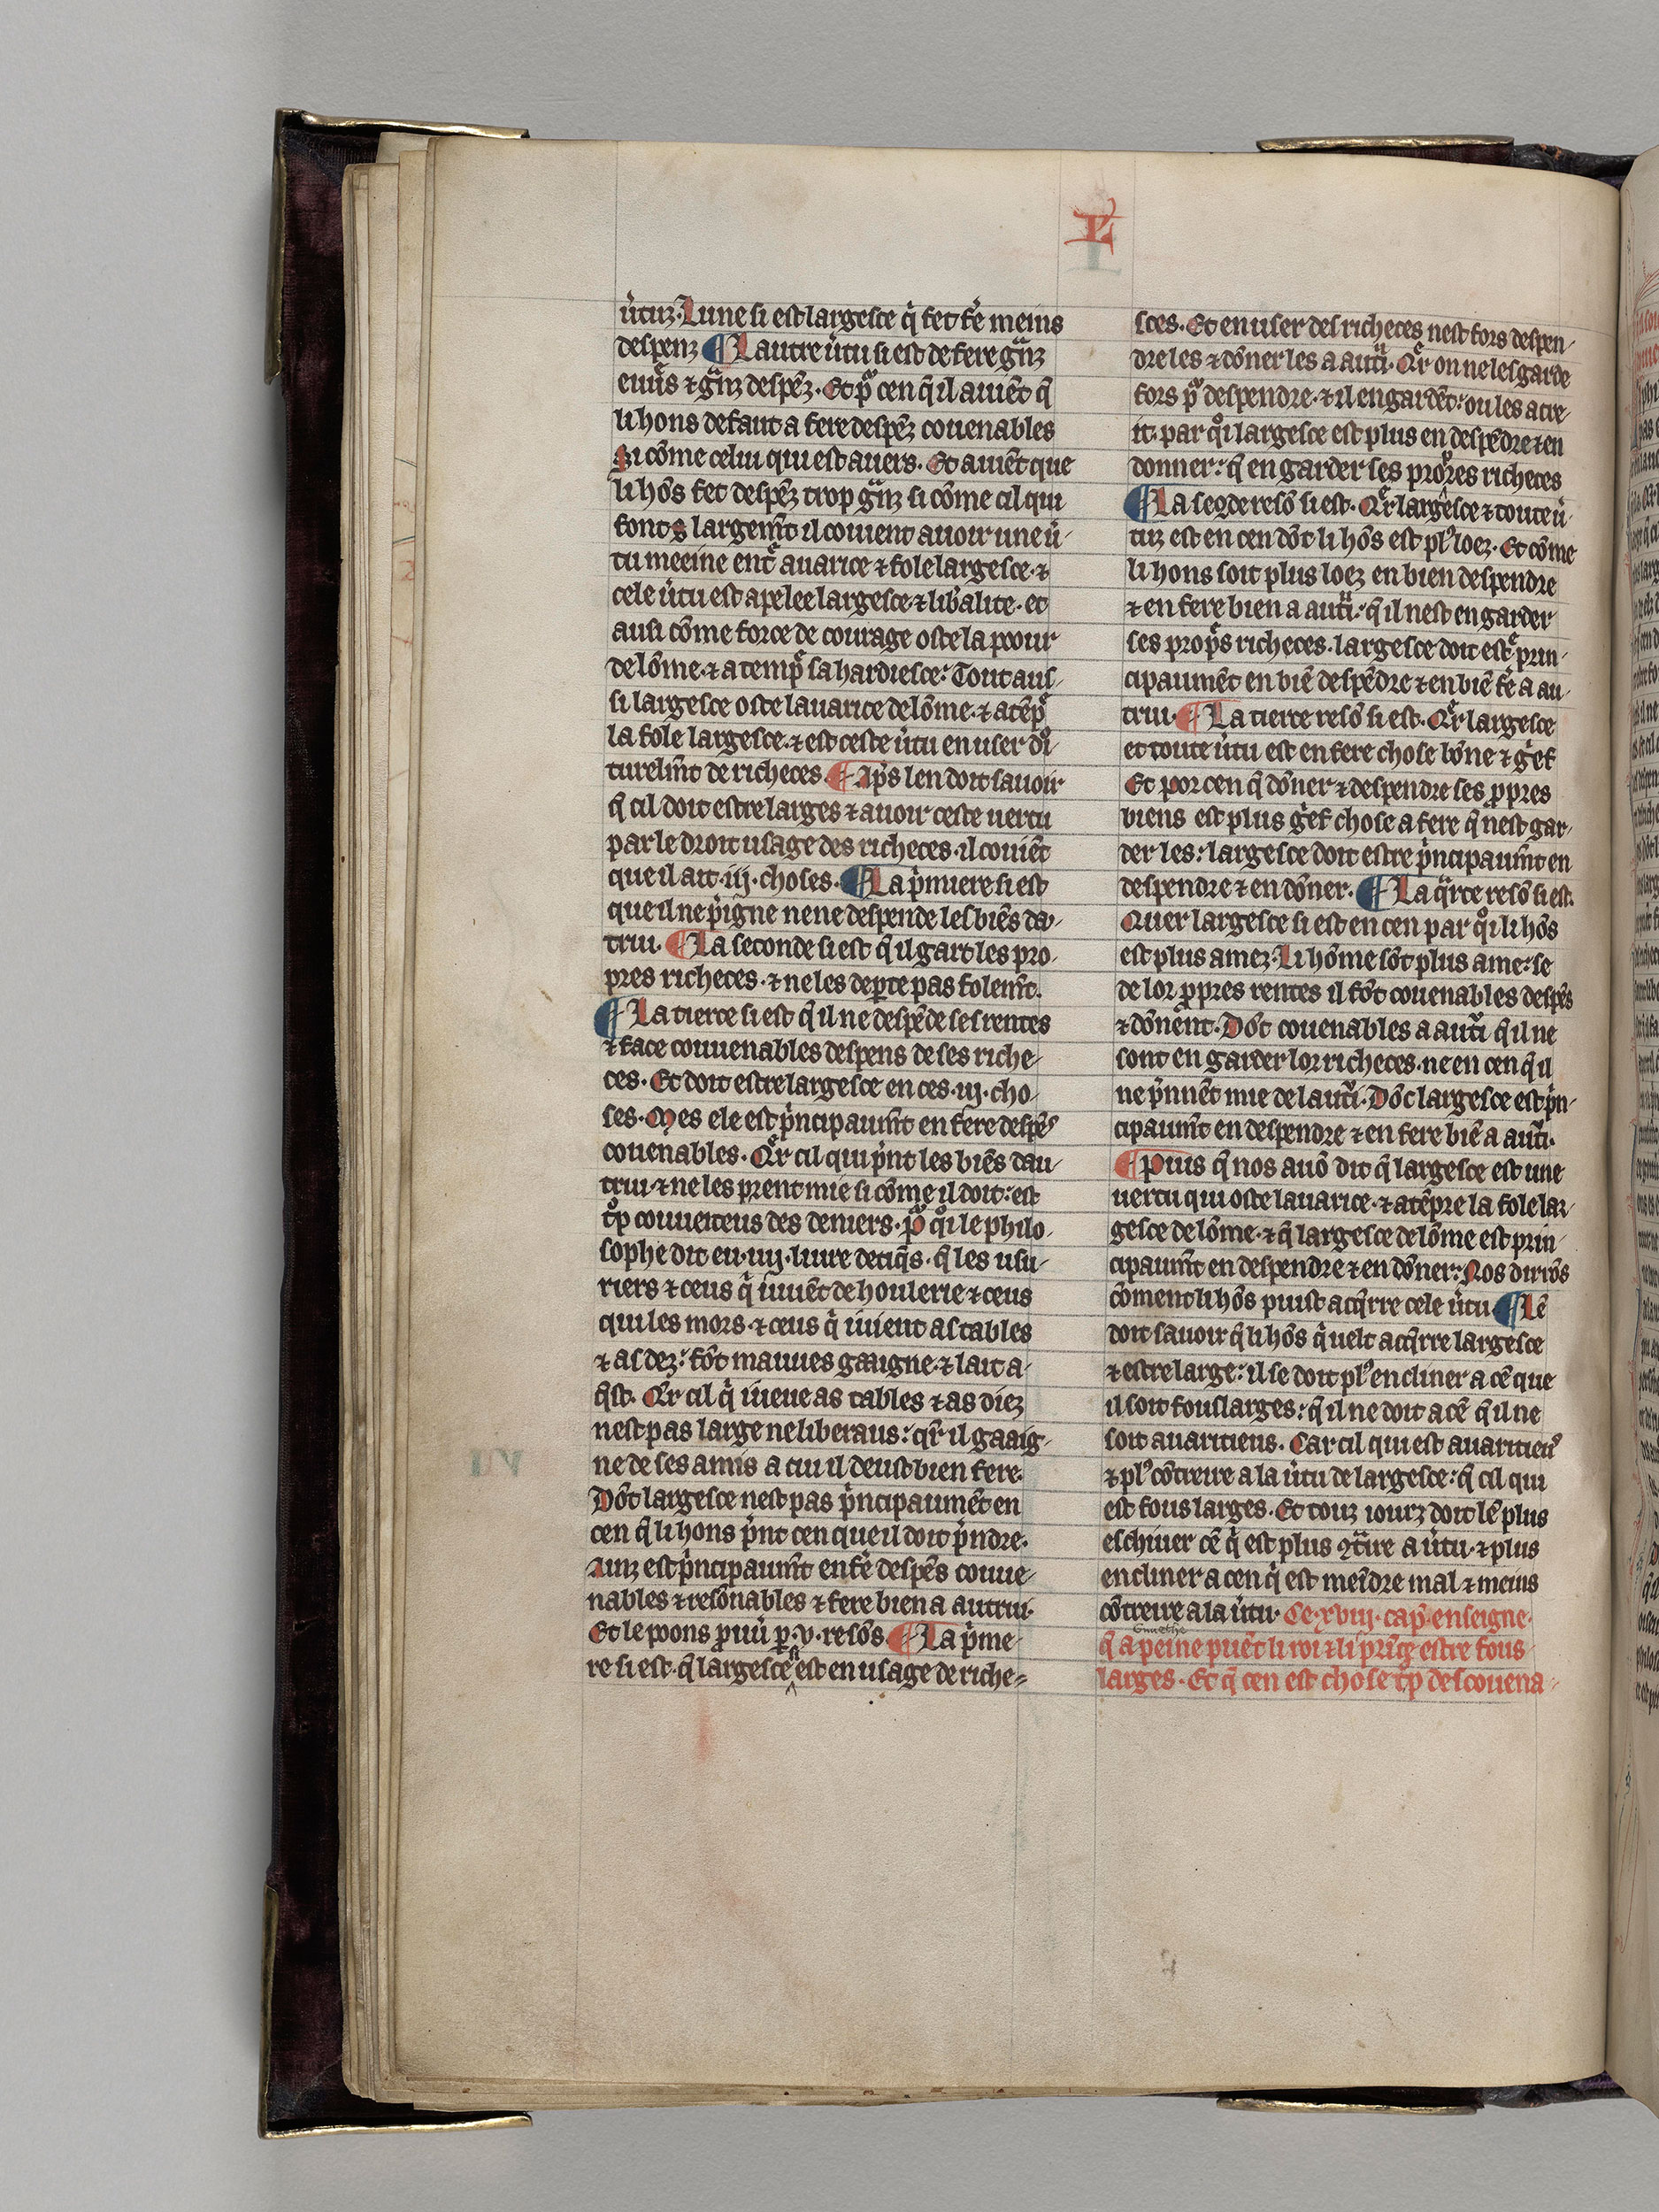 L
ùtuz. Lune si est largesce q̇ fet fẻ meins
despenz ¶ Lautre ùtu si est de fere gᷓnz
euuꝛs ⁊ gᷓnz despēz. Et pͦ cen q̄ il auiēt q̄
li hons defaut a fere despēz couenables
Si cōme celui qui est auers. Et auiēt que
li hōs fet despēz trop gᷓnz si cōme cil qui
sont largemt̄ il couient auoir une ù-
tu meeine entͤ auarice ⁊ fole largesce. ⁊
cele ùtu est apelee largesce. ⁊ libalite. et
ausi cōme force de courage oste la poour
de lōme. ⁊ atempͤ sa hardiesce: Tout aus-
si largesce oste lauarice de lōme. ⁊ atēpͤ
la fole largesce. ⁊ est ceste ùtu en user dͦi-
turelmt̄ de richeces ¶ Apˢ len doit sauoir
q̄ cil doit estre larges ⁊ auoir ceste uertu
par le droit usage des richeces. il couiēt
que il ait .iij. choses. ¶ La pͥmiere si est
que il ne pꝛigne ne ne despende les biēs da-
trui. ¶ La seconde si est q̄ il gart les pro-
pres richeces. ⁊ ne les deꝑte pas folemt̄.
¶ La tierce si est q̄ il ne despēde ses rentes
⁊ face couuenables despens de ses riche-
ces. Et doit estre largesce en ces .iij. cho-
ses. Mes ele est pͥncipaumt̄ en fere despēˢ
couenables. Qͤr cil qui pͥnt les biēs dau-
trui ⁊ ne les prent mie si cōme il doit: est
tͦp couueiteus des deniers. pͦ qͦi le philo-
sophe dit eu .iiij. liure detiqˢ. q̄ les usu-
riers ⁊ ceus q̇ uiuēt de houlerie ⁊ ceus
qui les mors. ⁊ ceus q̇ iuient as tables
⁊ as dez: fōt mauues gaaigne. ⁊ lait a-
q̄st. Qͤr cil q̇ iueue as tables ⁊ as diez
nest pas large ne liberaus: qͤr il gaaig-
ne de ses amis a cui il deust bien fere.
Dōt largesce nest pas pͥncipaumēt en
cen q̄ li hons pͥnt cen que il doit pͥndre.
Ainz est pͥncipaumt̄ en fẻ despēs couue-
nables ⁊ resōnables ⁊ fere bien a autrui.
Et le poons ꝓuù ꝑ .v. resōs. ¶ La pͥme-
re si est. q̄ largesce est en usage de riche-
sces. Et en user des richeces nest fors despen-
dre les ⁊ dōner les a autͥ. Qͤr on ne les garde
fors pͦ despendre. ⁊ il en gardēt: ou les acre-
it. par qͦi largesce est plus en despēdre ⁊ en
donner: q̄ en garder ses propres richeces
¶ La segde resō si est. Qͤr largesce ⁊ toute ù-
tuz est en cen dōt li hōs est plꝰ loez. Et cōme
li hons soit plus loez en bien despendre
⁊ en fere bien a autͥ: q̄ il nest en garder
ses propͤs richeces. largesce doit estͤ prin-
cipaumēt en biē despēdre ⁊ en biē fe a au-
trui. ¶ La tierce resō si est. Qͤr largesce
et toute ùtu est en fere chose bōne ⁊ gͥef
Et por cen q̄ dōner ⁊ despendre ses ꝓpres
biens est plus gͥef chose a fere q̄ nest gar-
der les: largesce doit estre pͥncipaumt̄ en
despendre ⁊ en dōner. ¶ La qᷓrte resō si est.
Quer largesce si est en cen par qͦi li hōs
est plus amez. Li hōme sōt plus ame: se
de lor ꝓpres rentes il fōt couenables despēs
⁊ dōnent. Dōt couenables a autͥ q̄ il ne
sont en garder lor richeces. ne en cen q̄ il
ne pͥnnēt mie de lautͥ. Dōc largesce est pͥn-
cipaumt̄ en despendre ⁊ en fere biē a autͥ.
¶ Puis q̄ nos auō dit q̄ largesce est une
uertu qui oste lauarice. ⁊ atēpre la fole lar-
gesce de lōme. ⁊ q̄ largesce de lōme est prin-
cipaumt̄ en despendre ⁊ en dōner: Nos dirrōs
cōment li hōs puist acq̄rre cele ùtu ¶ Lē
doit sauoir q̄ li hōs q̇ uelt acq̄rre largesce
⁊ estre large: il se doit plꝰ encliner a cē que
il soit fous larges: q̄ il ne doit a cē q̄ il ne
soit auaricieus. Car cil qui est auaricieuˢ
⁊ plꝰ cōtreire a la ùtu de largesce: q̄ cil qui
est fous larges. Et touz iourz doit lē plus
eschiuer cē q̇ est plus ꝯtᷓire a ùtu. ⁊ plus
encliner a cen q̇ est mēdre mal ⁊ meins
cōtreire a la ùtu. Ce .xviij. cap̄. enseigne.
q̄ a peine puēt li roi ⁊ li prīce estre fous
larges. Et q̄ cen est chose tͦp descouena-